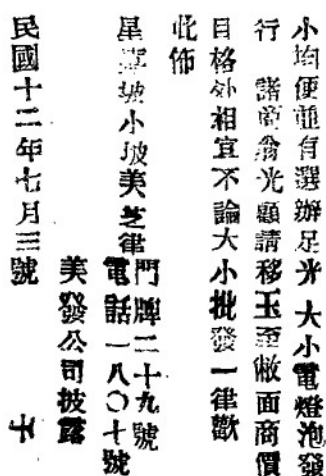 小均便並有選辦足光大小電燈泡發
行 諸商翁光顧請移玉至敝面商價
目格外相宜不論大小批發一律歡
此佈
星嘉坡小坡美芝律門牌二十九號
電話一八〇十號
美發公司披露
民國十二年七月三號